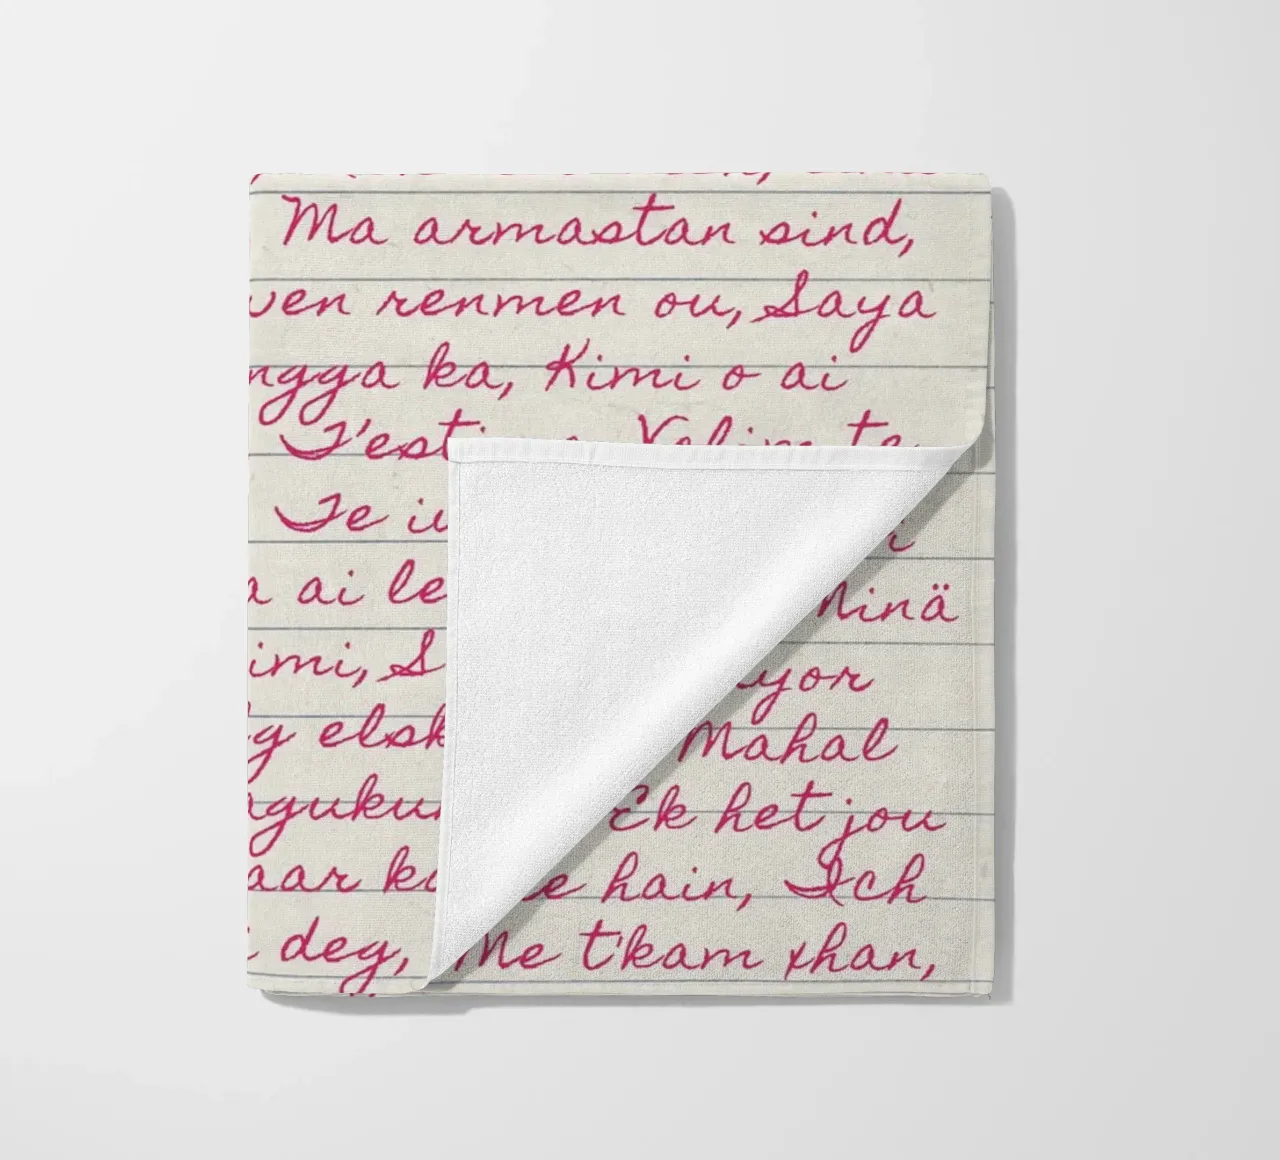 Ma armastan sind,
ven renmen ou, Saya
ngga ka, Kimi o ai
T'est Velim te
Te iu
a ai le Minä
imi, S yor
g elsk Mahal
aguku Ek het jou
aar ka e hain, Ich
i deg, Me t'kam xhan,